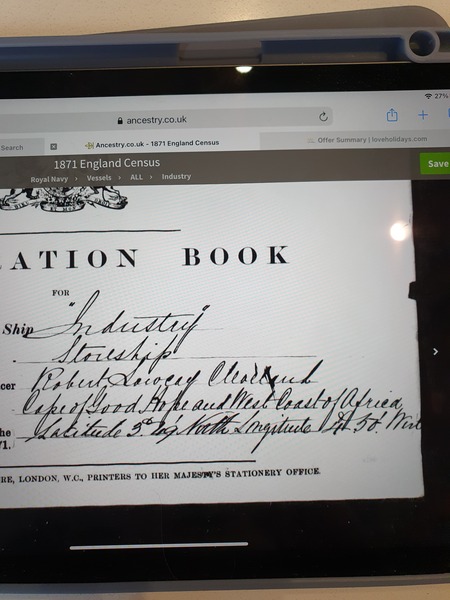 27%
ancestry.co.uk
Search
Ancestry.co.uk - 1871 England Census
Offer Summary | loveholidays.com
1871 England Census
Save
Royal Navy › Vessels › ALL › Industry
ATION BOOK
FOR
Ship "Industry"
Storeship
cer Robert
Cape of Good Hope and West Coast of Africa
he Latitude North Longitude
71.
RE, LONDON, W.C., PRINTERS TO HER MAJESTY'S STATIONERY OFFICE.